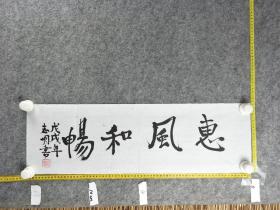 惠風和暢
戊戌年
志明書